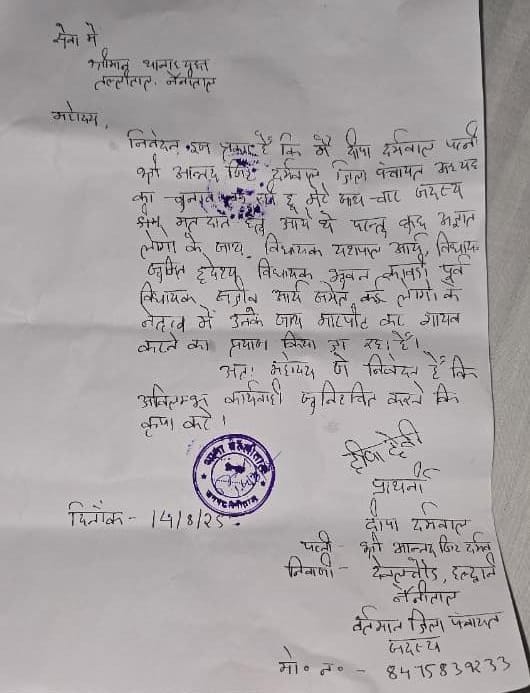 सेवा में
श्रीमान थानाध्यक्ष
तल्लीताल, नैनीताल
महोदय,
निवेदन इस प्रकार है कि मैं दीपा दर्मवाल पत्नी
श्री आनन्द सिंह दर्मवाल जिला पंचायत अध्यक्ष
का चुनाव लड़ रही हूं मेरे साथ चार सदस्य
मतदान हेतु आये थे परन्तु कुछ अज्ञात
लोगों के साथ, विधायक यशपाल आर्य, विधायक
सुमित हृदयेश विधायक भुवन कापडी पूर्व
विधायक संजीव आर्य समेत कई लोगों के
नेतृत्व में उनके साथ मारपीट कर गायब
करने का प्रयास किया जा रहा है।
अतः महोदय से निवेदन है कि
अविलम्ब कार्यवाही सुनिश्चित करने कि
कृपा करें।
दीपा देवी
प्रार्थनी
दीपा दर्मवाल
पत्नी - श्री आनन्द सिंह दर्मवाल
निवासी - देवलचौड, हल्द्वानी
नैनीताल
वर्तमान जिला पंचायत
सदस्य
मो० न० - 8475839233
दिनाँक - 14/8/25